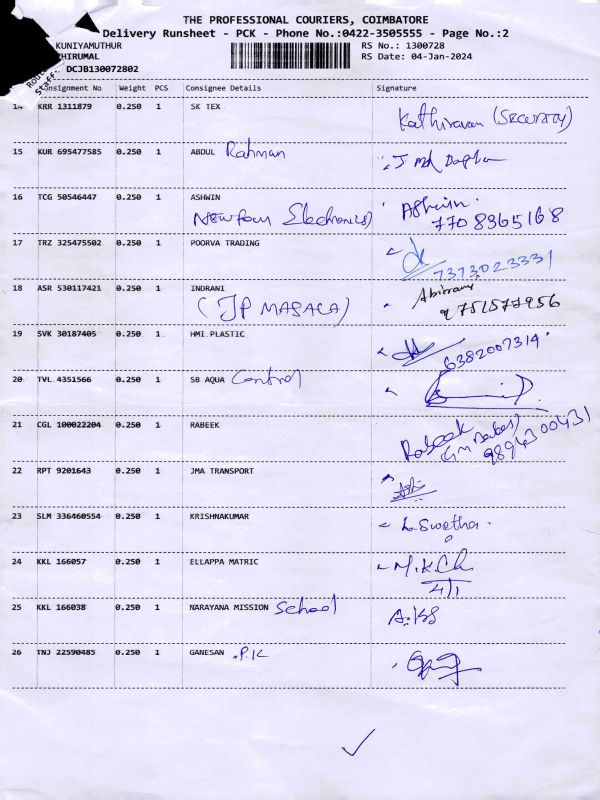 THE PROFESSIONAL COURIERS, COIMBATORE
Delivery Runsheet - PCK - Phone No.:0422-3505555 - Page No.:2
KUNIYAMUTHUR RS No.: 1300728
RS Date: 04-Jan-2024
DCJB130072802
Staff.
Consignment No Weight PCS Consignee Details Signature
14 KRR 1311879 0.250 1 SK TEX Kathiravan (Security)
15 KUR 695477585 0.250 1 ABDUL Rahman
16 TCG 50546447 0.250 1 ASHWIN Ashwin
New four Electronics) 7708365168
17 TRZ 325475502 0.250 1 POORVA TRADING
7373023331
18 ASR 530117421 0.250 1 INDRANI
(JP MASALA) 9751577956
19 SVK 30187405 0.250 1 HMI PLASTIC 6382007314
20 TVL 4351566 0.250 1 SB AQUA Control
21 CGL 100022204 0.250 1 RABEEK Rabeek
9894300431
22 RPT 9201643 0.250 1 JMA TRANSPORT
23 SLM 336460554 0.250 1 KRISHNAKUMAR L. Swetha
24 KKL 166057 0.250 1 ELLAPPA MATRIC
4/1
25 KKL 166038 0.250 1 NARAYANA MISSION School
26 TNJ 22590485 0.250 1 GANESAN .P.K